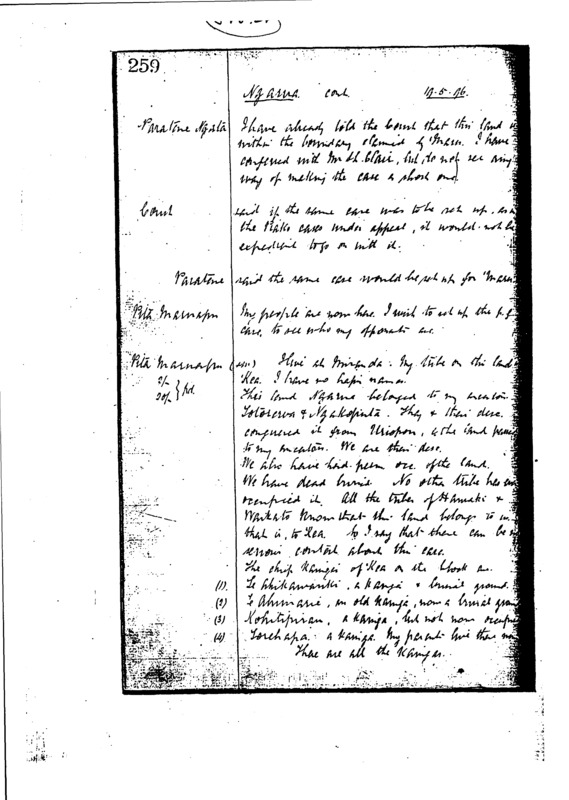 259
Ngarua cont. 19.5.96.
Paratene Ngata I have already told the Court that this land is
within the boundary claimed by Maru. I have
conferred with Mr St. Clair, but do not see any
way of making the case a short one.
Court said if the same case was to be set up, as in
the Piako cases under appeal, it would not be
expedient to go on with it.
Paratene said the same case would be set up for Maru
Pita My people are now here. I wish to set up the p.f.
case, to see who my opponents are.
Pita (sn) I live at Miranda. My tribe on this land
Kea. I have no hapu names.
2/- This land Ngarua belonged to my ancestors
20/- } pd. & They & their desc.
conquered it from & the land passed
to my ancestors. We are their desc.
We also have had perm occ. of the land.
We have dead buried. No other tribe has ever
occupied it. All the tribes of Hauraki &
Waikato know that this land belongs to us
that is, to Kea. So I say that there can be no
serious contest about this case.
The chief kaingas of Kea on the block are
(1) Te a kainga & burial ground.
(2) Te an old kainga, now a burial ground
(3) a kainga, but not now occupied
(4) a kainga. My parents live there now
These are all the kaingas.